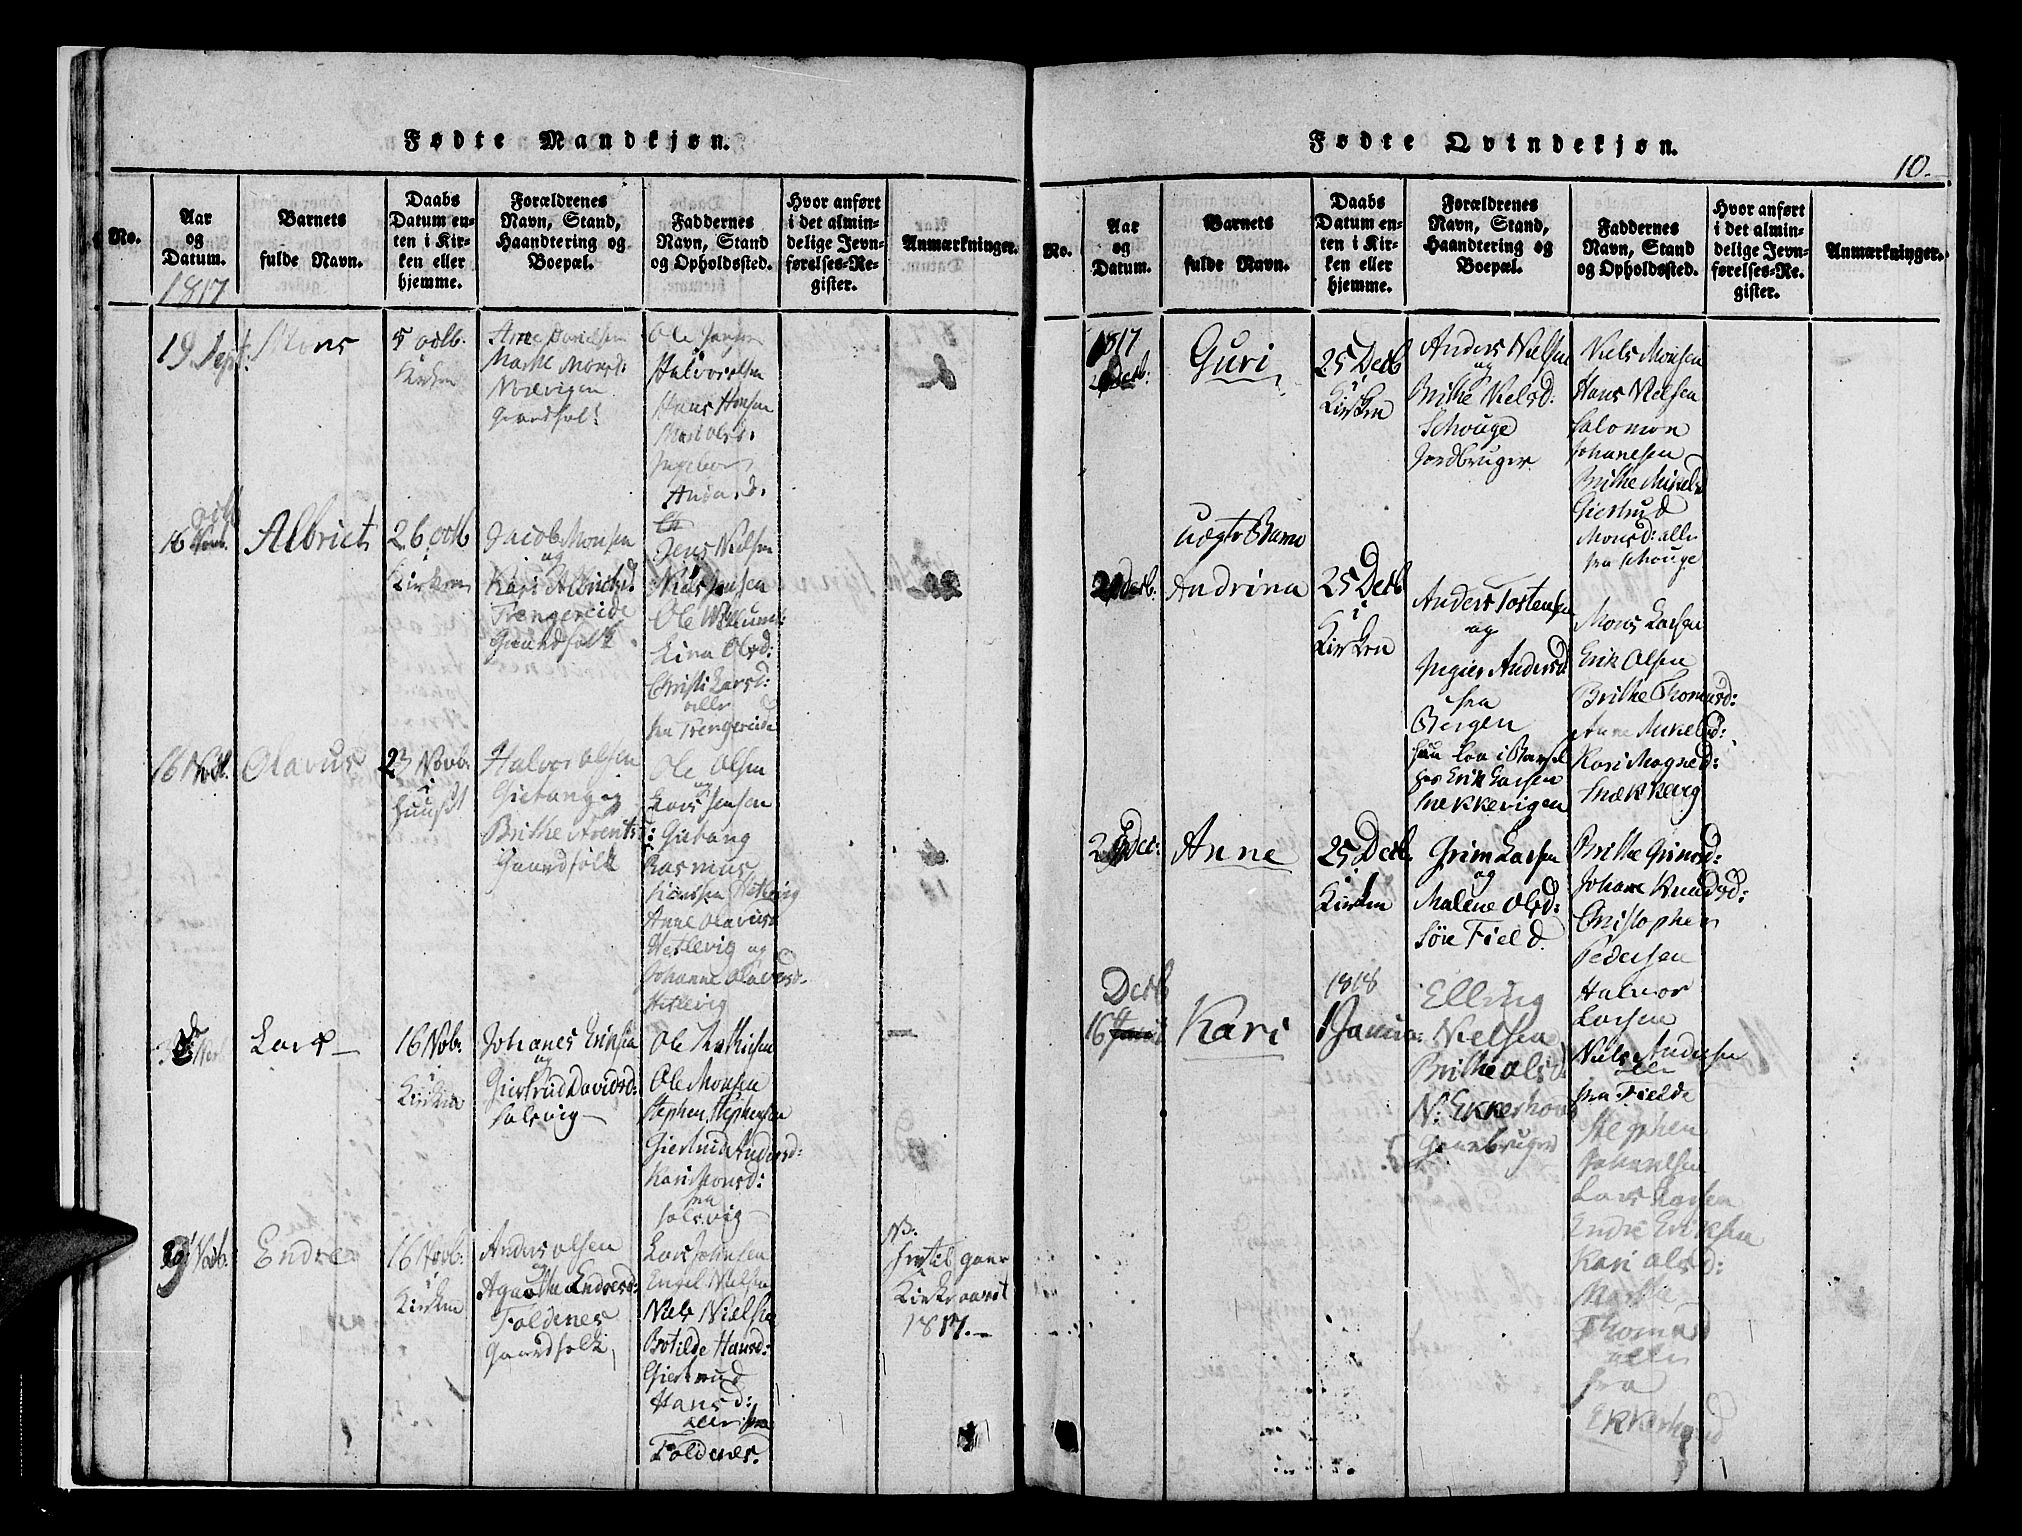 Fødte Mandkjøn.
No.
Aar
og
Datum.
1817
Barnets
fulde Navn.
Daabs
Datum en-
ten i Kir-
ken eller
hjemme.
Forældrenes
Navn, Stand,
Haandtering og
Boepæl.
Faddernes
Navn, Stand
og Opholdssted.
Hvor anført
i det almin-
delige Jevn-
førelses-Re-
gister.
Anmærkninger.
19 Sept:
Mons
5 octb.
Kirken
Arne Davidsen
Marthe Monsd:
Nordvigen
Gaardfol:
Ole
Halvor olsen
Hans Hansen
Mari olsd.
Ingebor
Andersd.
16
octb
Albrict
26 octb
i
Kirken
Jacob Monsen
og
Kari Albrictsd.
Trengereide
Gaardfolk
Jens Nielsen
Niels Jensen
Ole Willumse:
Lina Olsd:
Christi Larsd:
alle
fra Trengereide
16 Novb.
Olavus
23 Novb.
i
Huuset
Halvor olsen
Gietang og
Brithe Arentsd:
Gaardfolk
Ole Olsen
og
Lars Jensen
Gietang
Rasmus
Hetlevig
Anne Olavusd
Hetlevig og
Johanne Olavusd.
Hetlevig
Lars
16 Novb:
i
Kirken
Johanes Eriksen
og
Giertrud Davidsd:
Salsvig
Ole Mathiesen
Ole Monsen
Stephen Stephensen
Giertrud Andersd:
Kari Monsd:
fra
Salsvig
9 Novb:
Endre
16 Novb:
i
Kirken
Anders olsen
og
Agathe Endresd:
Toldenes
Gaardfolk
Lars Johnsen
Engel Nielsen
Niels Nielsen
Botilde Hansd:
Giertrud
Hansd:
alle fra
Toldenes.
NB.
hertil gaar
Kirkeaaret
1817.
Fødte Qvindekjøn.
10.
No.
Aar
og
Datum.
Barnets
fulde Navn.
Daabs
Datum en-
ten i Kir-
ken eller
hjemme.
Forældrenes
Navn, Stand,
Haandtering og
Boepæl.
Faddernes
Navn, Stand
og Opholdssted.
Hvor anført
i det almin-
delige Jevn-
førelses-Re-
gister.
Anmærkninger.
1817
Decb:
Guri
25 Decb
i
Kirken
Anders Nielsen
og
Brithe Nielsd:
Schouge
Jordbruger
Niels Monsen
Hans Nielsen
Salomon
Johanesen
Brithe Mikelsd
Giertrud
Monsd: alle
fra Schouge
Decb.
uægte Barn
Andrina
25 Decb
i
Kirken
Anders Tostensen
og
Ingier Andersd
fra
Bergen
hun laa i Barsel
hos Erik Larsen
Snekkevigen
Mons Larsen
Erik Olsen
Brithe Thomasd:
Anne Mikelsd:
Kari Magnesd:
Snækkevig
Dec:
Anne
25 Decb.
i
Kirken
Grim Larsen
og
Malene Olsd:
Søre Field
Brithe Grimsd:
Johane Knudsd:
Christopher
Pedersen
Halvor
Larsen
Niels Andersen
alle
fra Fielde
Decb
16
Kari
1818
1 Janua:
Elling
Nielsen
Brithe Olsd
N: Ekkerhovd
Gaardbruger
Stephen
Johanesen
Lars Larsen
Endre Eriksen
Kari olsd:
Marthe
Thomasd
alle
fra
Ekkerhovd